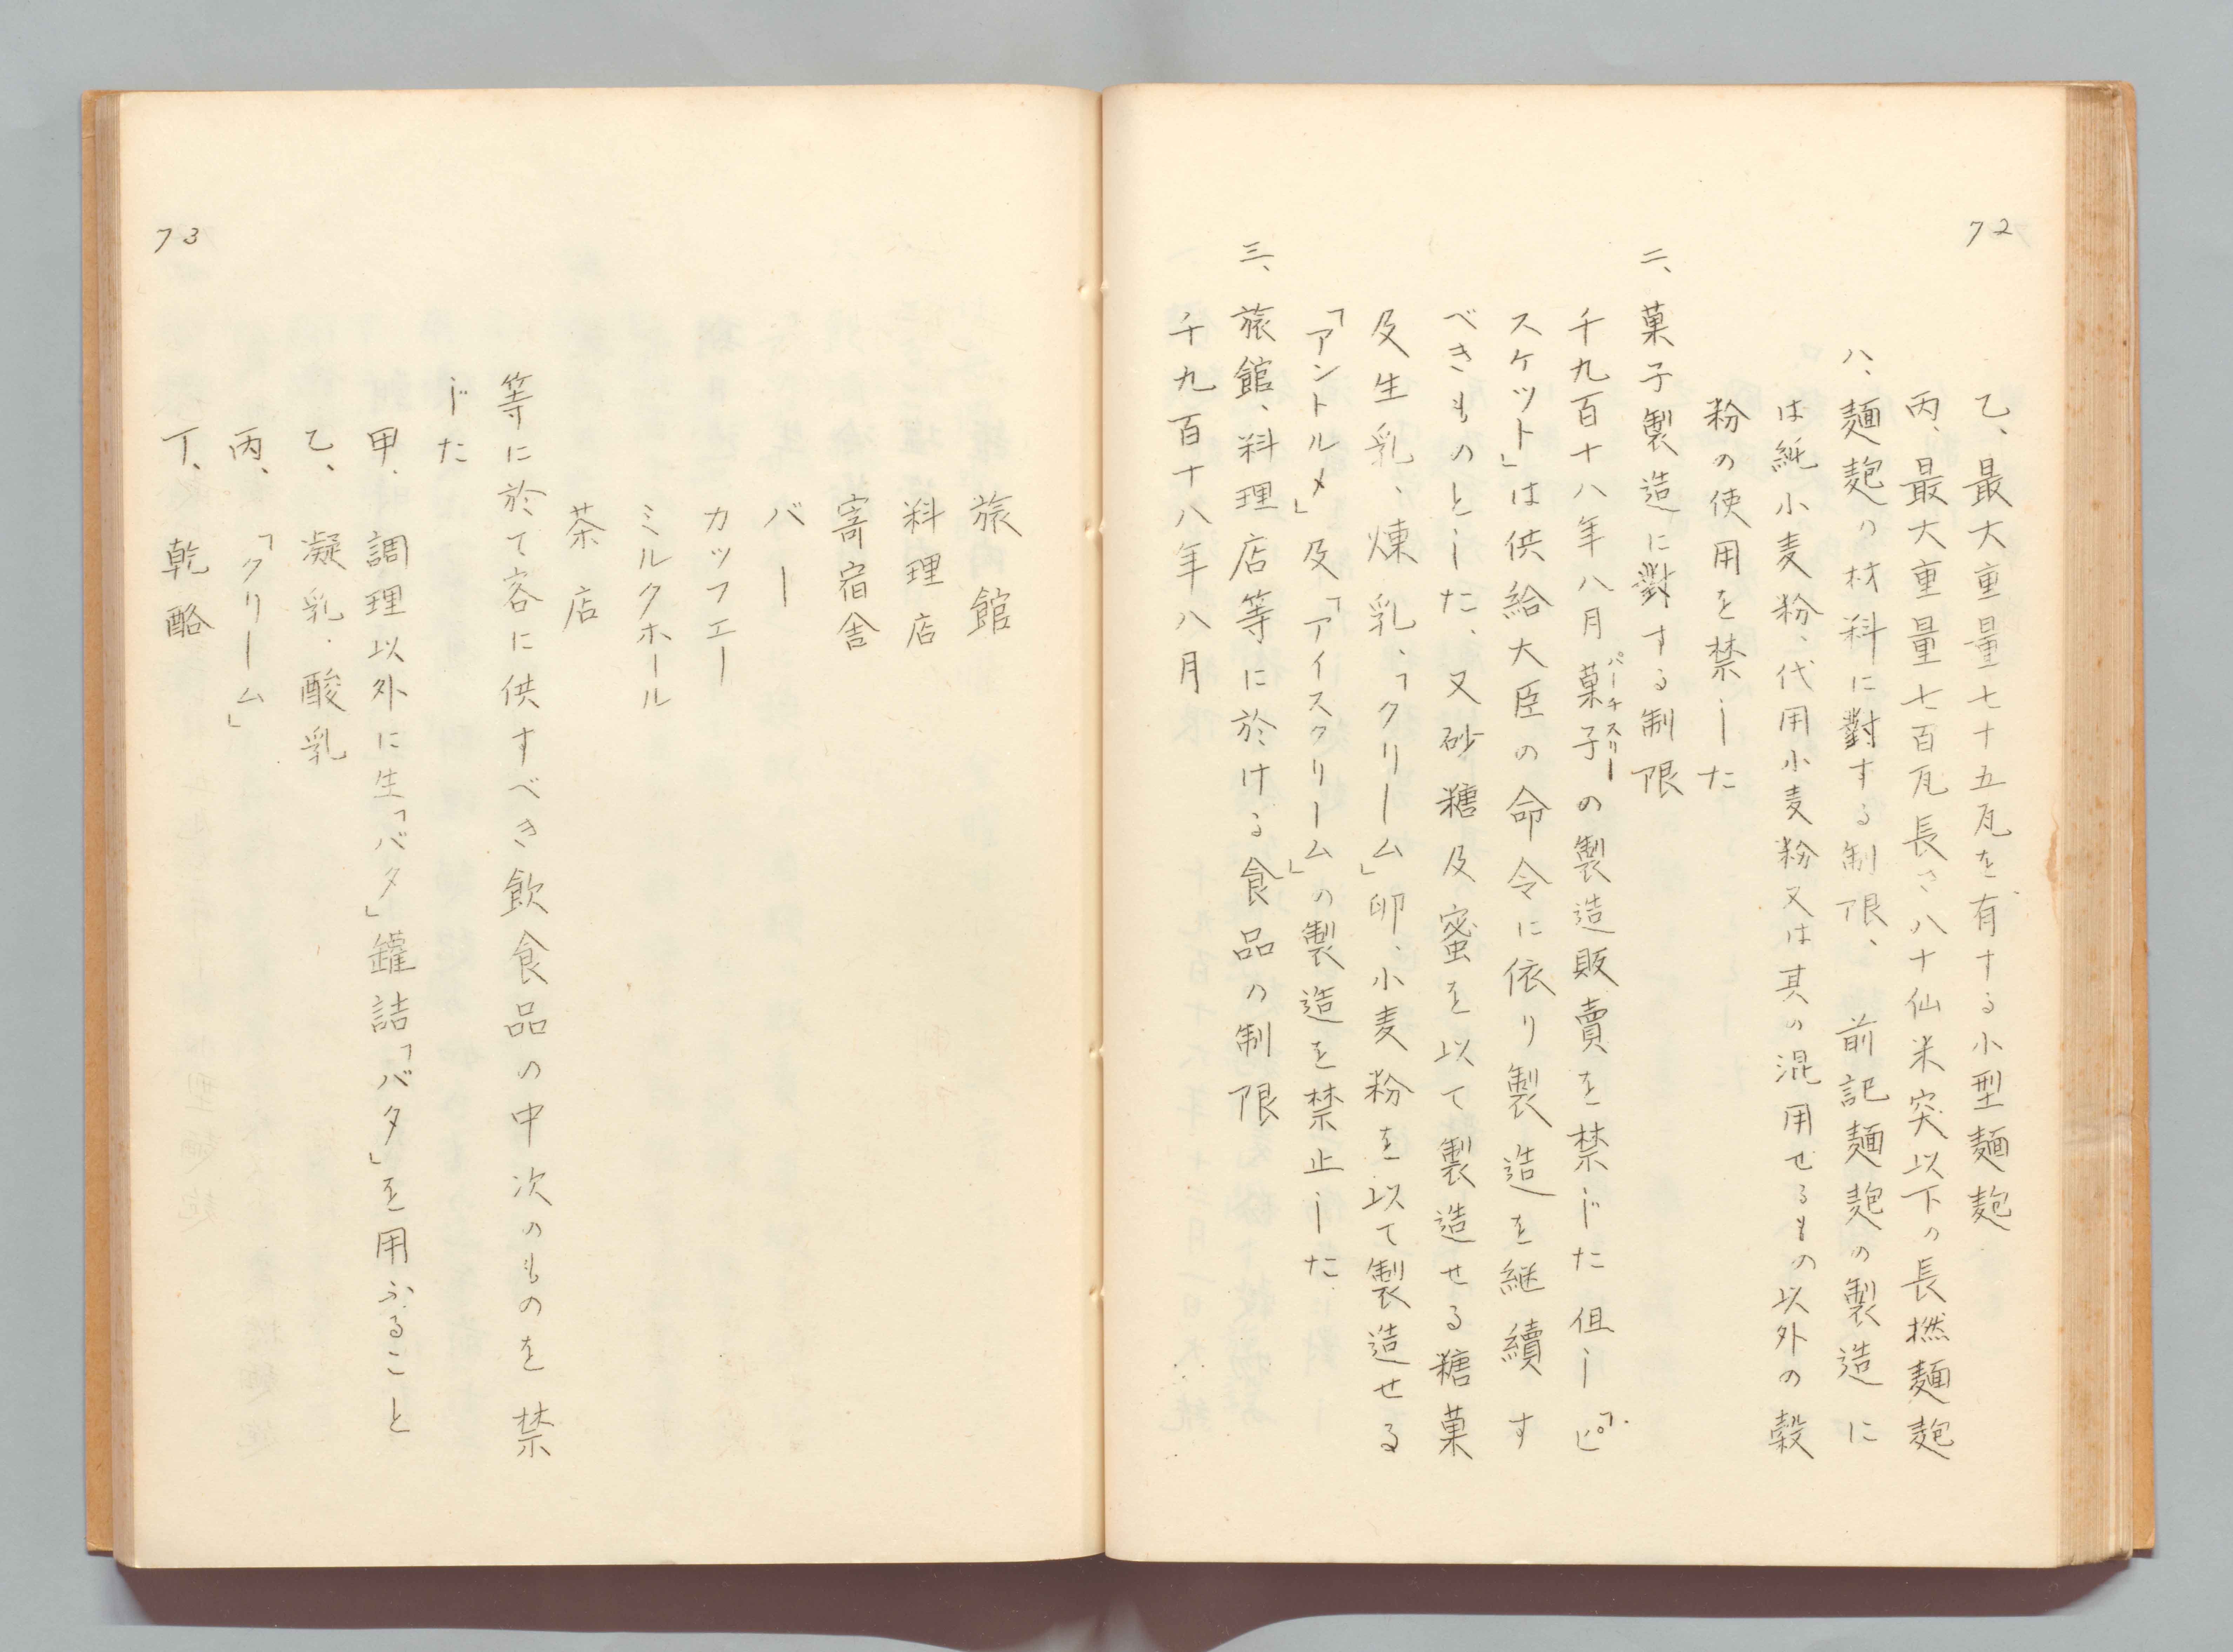 72
乙、最大重量七十五瓦を有する小型麺麭
丙、最大重量七百瓦長さ八十仙米突以下の長撚麺麭
ハ、麺麭の材料に對する制限、前記麺麭の製造に
は純小麦粉、代用小麦粉又は其の混用せるもの以外の穀
粉の使用を禁した
二、菓子製造に對する制限
千九百十八年八月菓子パーチスリーの製造販賣を禁じた但し「ビ
スケット」は供給大臣の命令に依り製造を継續す
べきものとした、又砂糖及蜜を以て製造せる糖菓
及生乳、煉乳、「クリーム」卵、小麦粉を以て製造せる
「アントルメ」及「アイスクリーム」の製造を禁止した
三、旅館、料理店等に於ける食品の制限
千九百十八年八月
旅館
料理店
寄宿舎
バー
カッフエー
ミルクホール
茶店
等に於て客に供すべき飲食品の中次のものを禁
じた
甲、調理以外に生「バタ」罐詰「バタ」を用ふること
乙、凝乳、酸乳
丙、「クリーム」
丁、乾酪
73